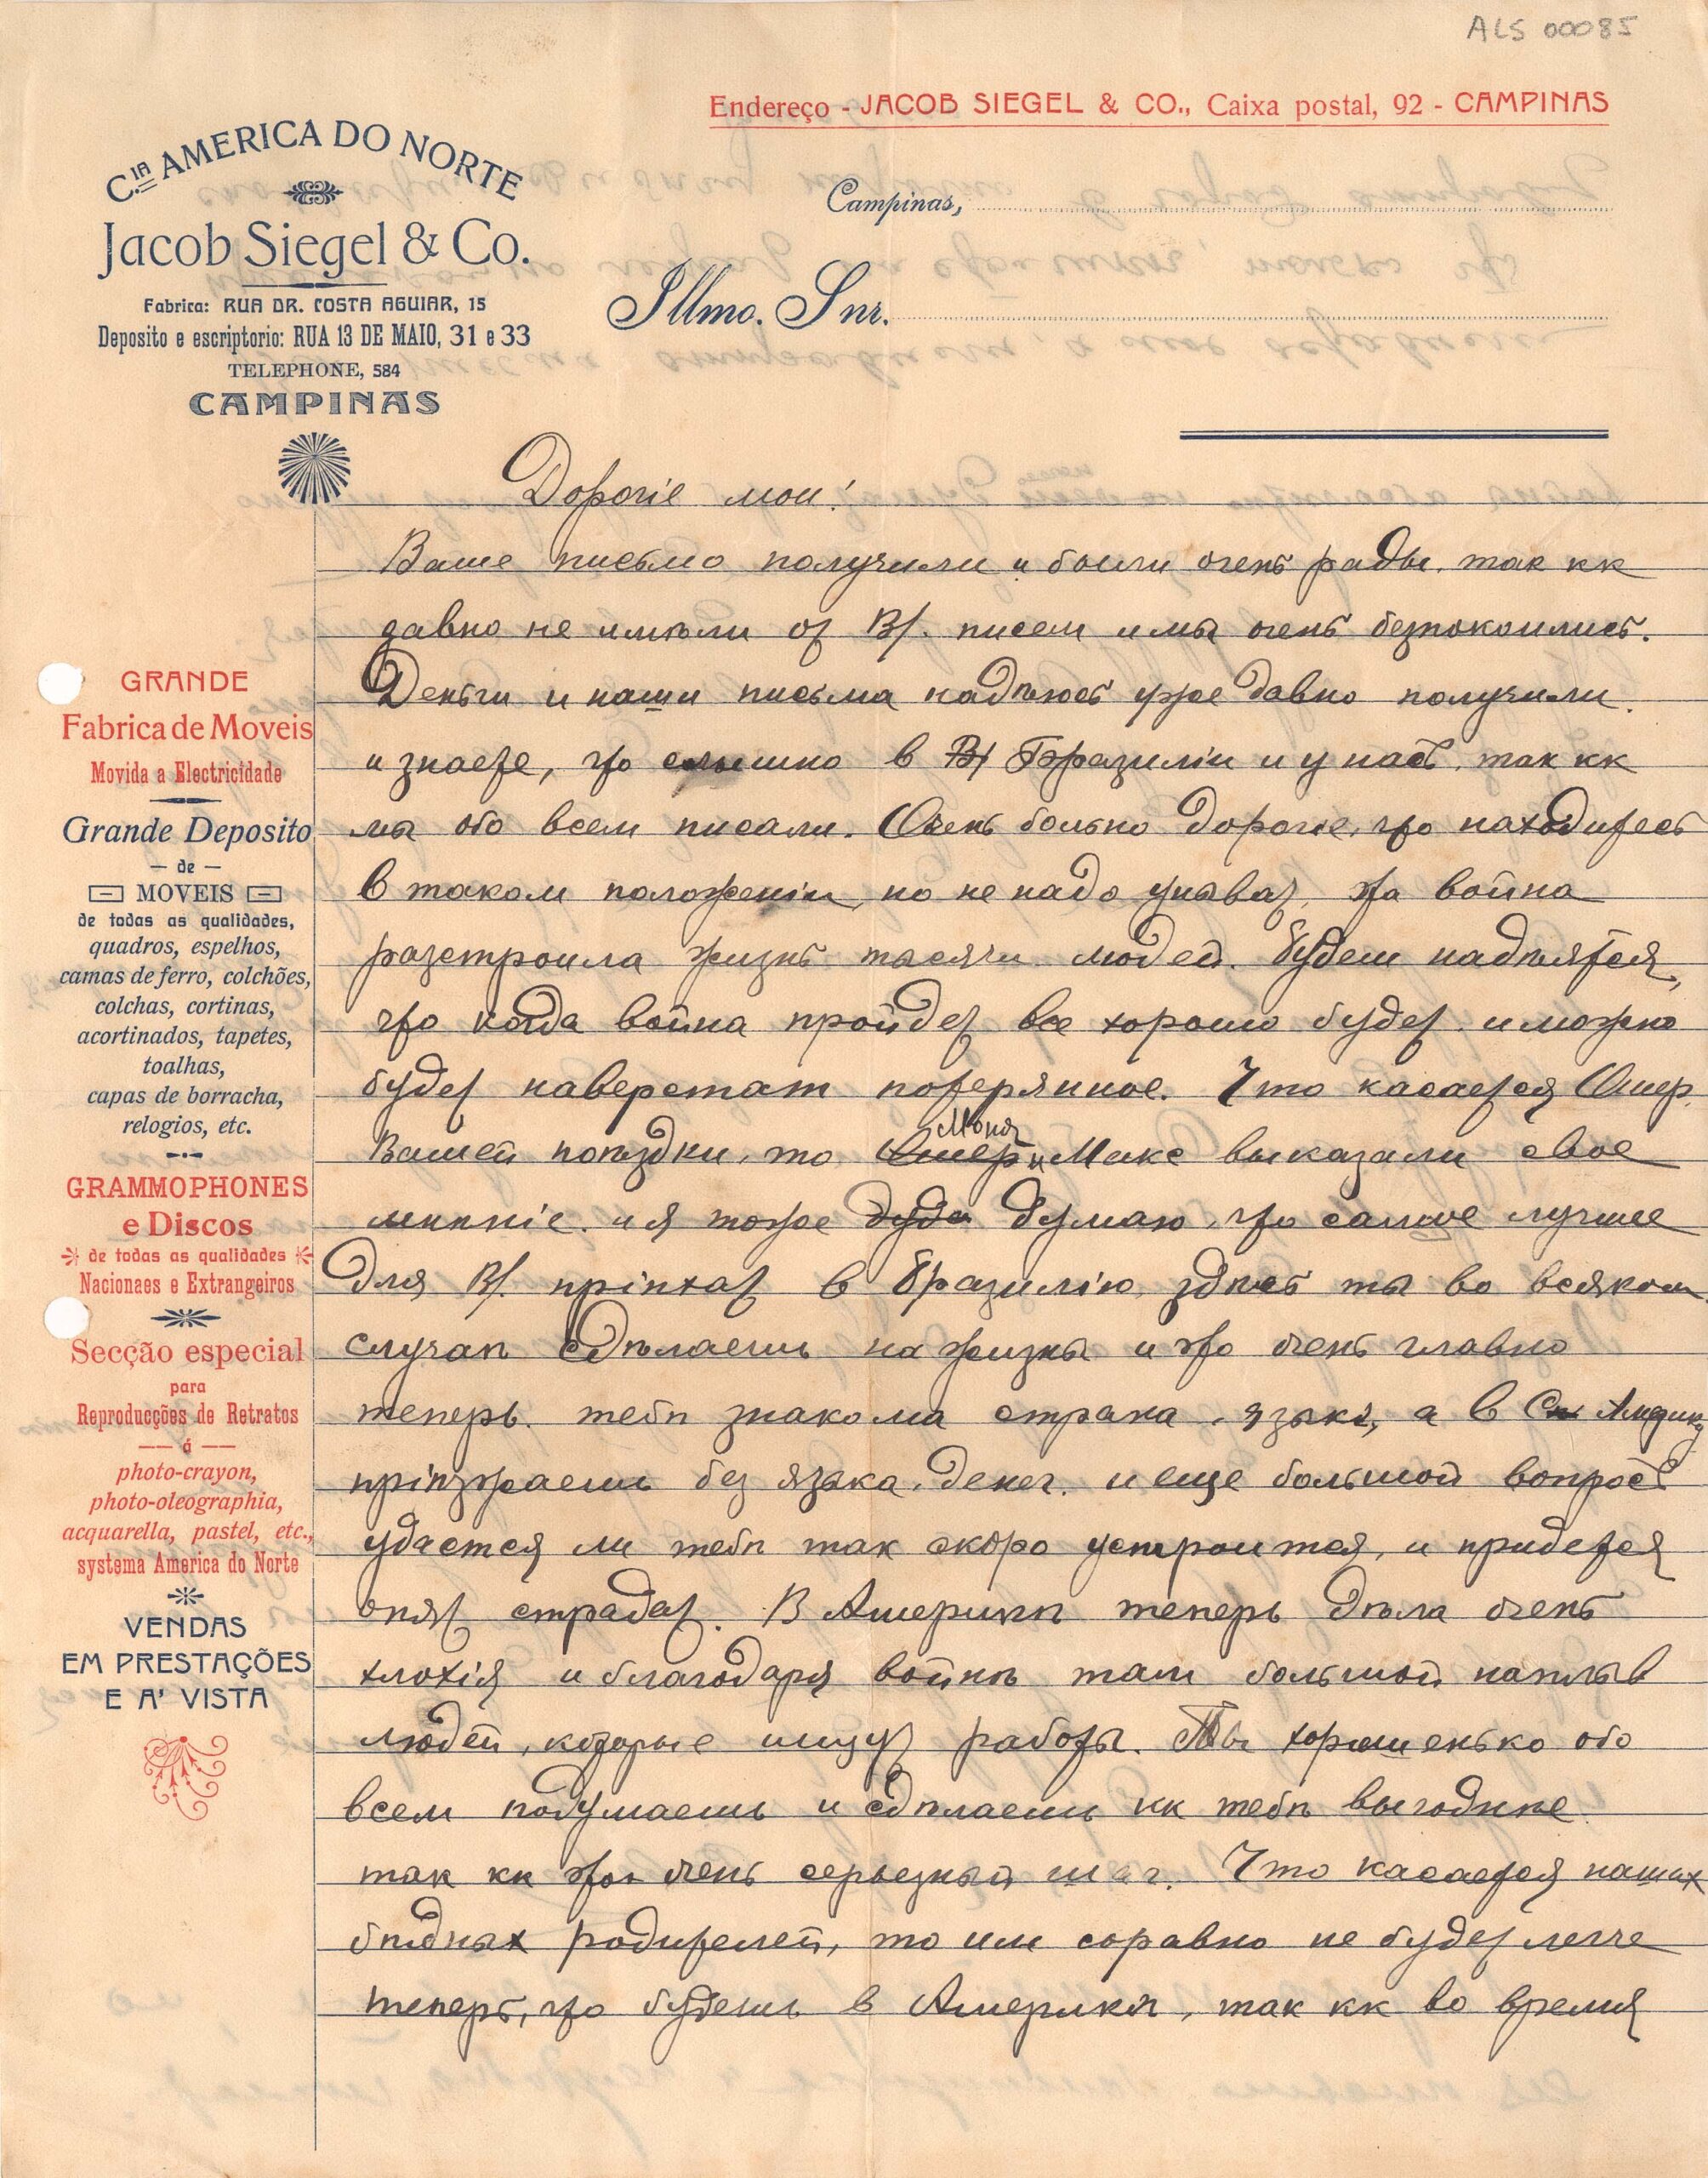 ALS 00085
Endereço - JACOB SIEGEL & CO., Caixa postal, 92 - CAMPINAS
C.IA AMERICA DO NORTE
Jacob Siegel & Co.
Fabrica: RUA DR. COSTA AGUIAR, 15
Deposito e escriptorio: RUA 13 DE MAIO, 31 e 33
TELEPHONE, 584
CAMPINAS
Campinas,
Illmo. Snr.
GRANDE
Fabrica de Moveis
Movida a Electricidade
Grande Deposito
— de —
MOVEIS
de todas as qualidades,
quadros, espelhos,
camas de ferro, colchões,
colchas, cortinas,
acortinados, tapetes,
toalhas,
capas de borracha,
relogios, etc.
GRAMMOPHONES
e Discos
de todas as qualidades
Nacionaes e Extrangeiros
Secção especial
para
Reproducções de Retratos
— á —
photo-crayon,
photo-oleographia,
acquarella, pastel, etc.,
systema America do Norte
VENDAS
EM PRESTAÇÕES
E A' VISTA
Дорогіе мои!
Ваше письмо получили и были очень рады, так кк
давно не имѣли от В/. писем и мы очень безпокоились.
Деньги и наши письма надѣюсь уже давно получили
и знаете, что слышно в Бразиліи и у нас, так кк
мы обо всем писали. Очень больно дорогие, что находитесь
в таком положеніи, но не надо унывать, эта война
разстроила жизнь тысячи людей. Будем надѣятся,
что когда война пройдет все хорошо будет и можно
будет наверстат потерянное. Что касается Ошер
Вашей поѣздки, то Моня и Макс выказали свое
мнѣніе и я тоже думаю, что самое лучшее
для В/. пріѣхат в Бразилію, здѣсь ты во всяком
случаѣ сдѣлаешь на жизнь и это очень главно
теперь тебѣ знакома страна, язык, а в Америку
пріѣзжаешь без языка, денег и еще большой вопрос
удастся ли тебѣ так скоро устроится, и придется
опят страдат. В Америкѣ теперь дѣла очень
плохія и благодаря войнѣ там большой наплыв
людей, которые ищут работы. Ты хорошенько обо
всем подумаешь и сдѣлаешь кк тебѣ выгоднѣе
так кк это очень серьезный шаг. Что касается наших
бѣдных родителей, то им соравно не будет легче
теперь, что будешь в Америкѣ, так кк во время